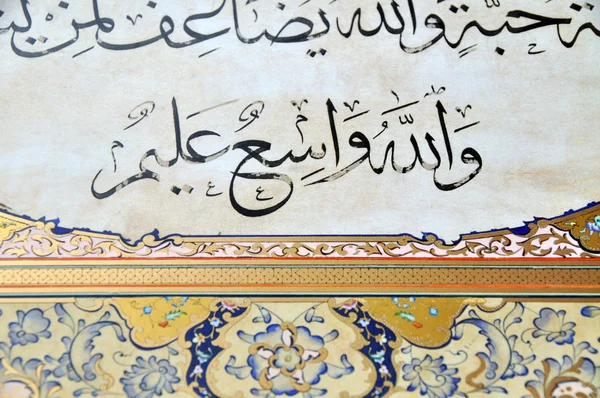 ة حَبَّةٍ وَاللهُ يُضَاعِفُ لِمَنْ يَشَ
وَاللهُ وَاسِعٌ عَلِيمٌ